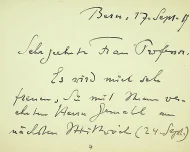 Bern, 17. Sept.
Sehr geehrte Frau Professor.
Es wird mich sehr
freuen, Sie mit Ihrem ver-
ehrten Herrn Gemahl am
nächsten Mittwoch (24. Sept.)